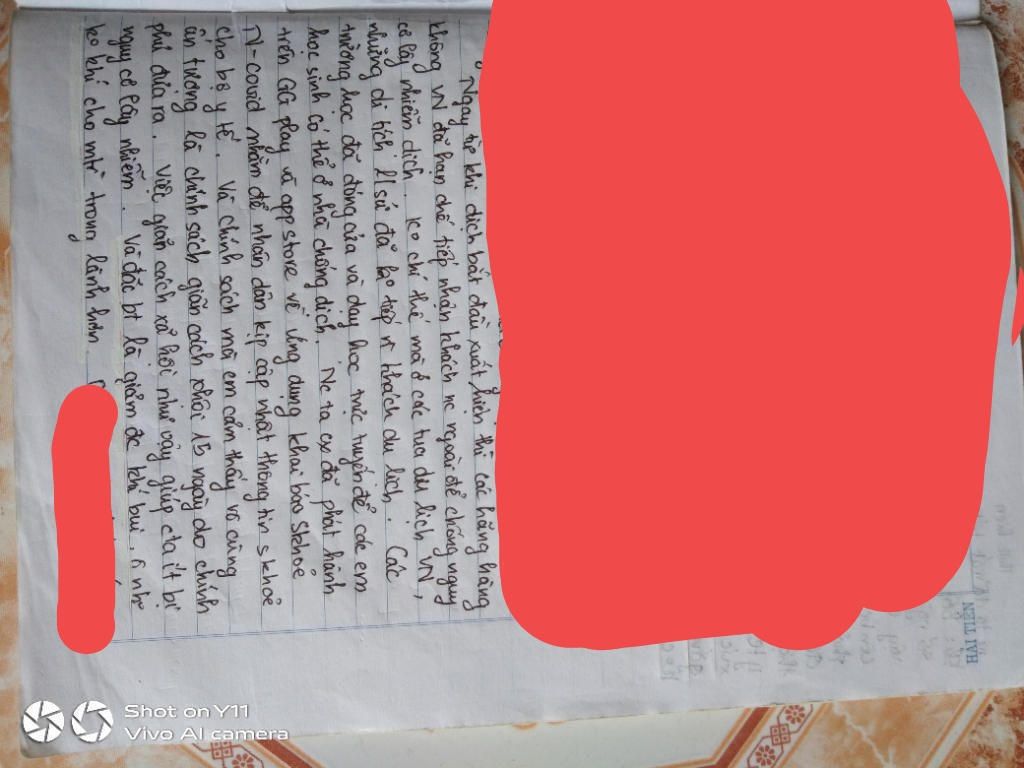 Ngay từ khi dịch bắt đầu xuất hiện thì các hãng hàng
không VN đã hạn chế tiếp nhận khách nc ngoài để chống nguy
cơ lây nhiễm dịch. Ko chỉ thế mà ở các tua du lịch VN,
những di tích l sử đã ko tiếp n khách du lịch. Các
trường học đã đóng cửa và dạy học trực tuyến để các em
học sinh có thể ở nhà chống dịch. Nc ta cx đã phát hành
trên GG play và app store về ứng dụng khai báo skhoẻ
N-covid nhằm để nhân dân kịp cập nhật thông tin s khoẻ
cho bộ y tế. Và chính sách mà em cảm thấy vô cùng
ấn tượng là chính sách giãn cách xhội 15 ngày do chính
phủ đưa ra. Việc giãn cách xã hội như vậy giúp cta ít bị
nguy cơ lây nhiễm. Và đặc bt là giảm đc khí bụi, ô nhi
ko khí cho mtr trong lành hơn.
HẢI TIẾN
Shot on Y11
Vivo AI camera